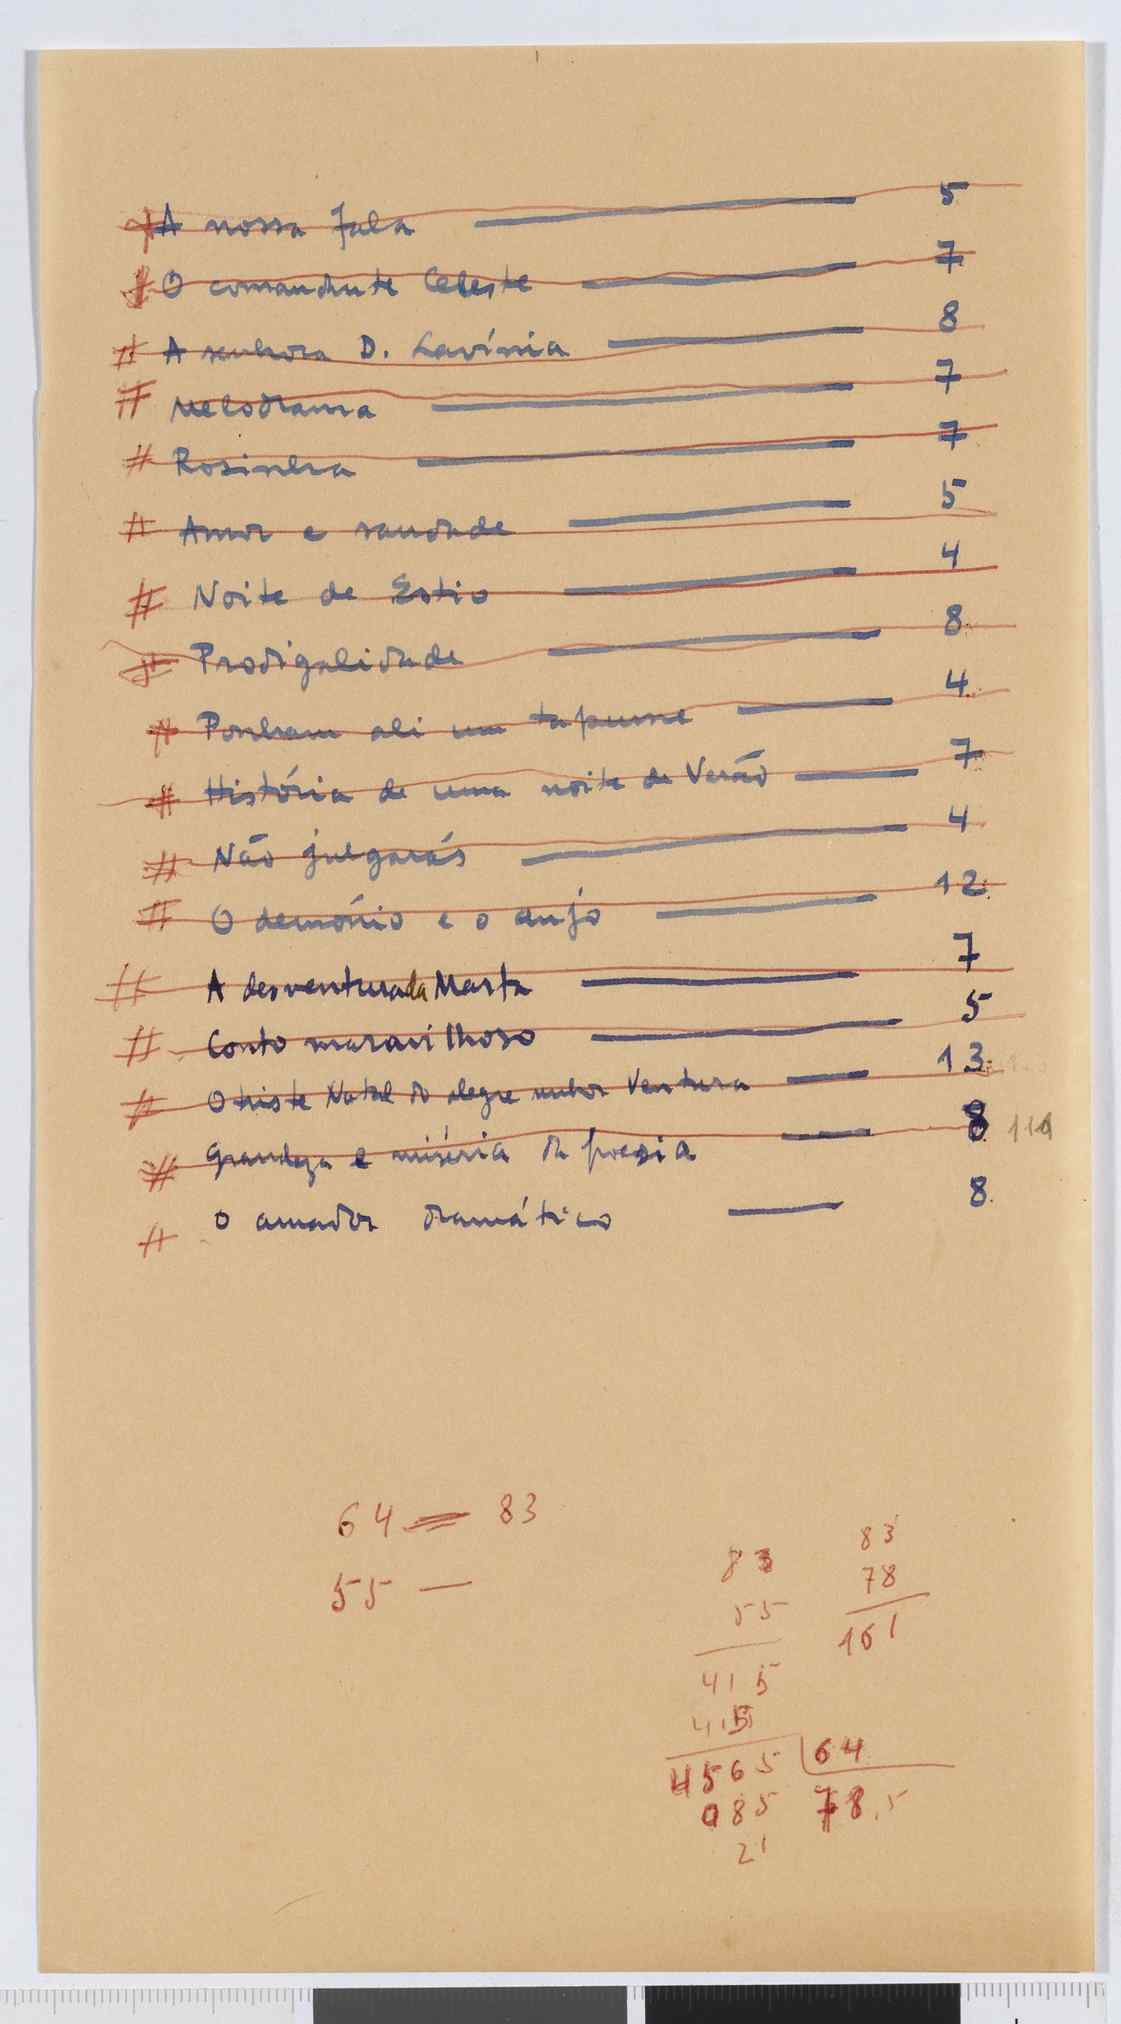 # A nossa fala — 5
# O comandante Celeste — 7
# A senhora D. Lavínia — 8
# Melodrama — 7
# Rosinha — 7
# Amor e saudade — 5
# Noite de Estio — 4
# Prodigalidade — 8
# Ponham ali um tapume — 4
# História de uma noite de Verão — 7
# Não julgarás — 4
# O demónio e o anjo — 12
# A desventura da Marta — 7
# Conto maravilhoso — 5
# O triste Natal do alegre senhor Ventura — 13
# Grandeza e miséria da poesia — 8 114
# O amador dramático — 8
64 = 83
55 —
83
55
415
415
4565 64
085 78,5
21
83
78
161